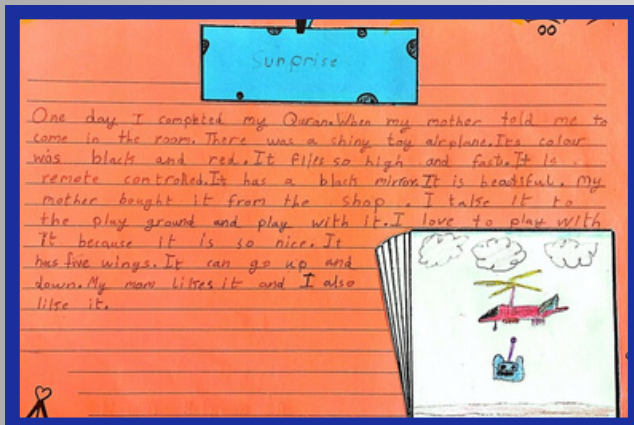 Sunprise
One day I completed my Quran. When my mother told me to
come in the room. There was a shiny toy airplane. Its colour
was black and red. It flies so high and fast. It is
remote controlled. It has a black mirror. It is beatiful. my
mother bought it from the shop. I take it to
the play ground and play with it. I love to play with
it because it is so nice. It
has five wings. It can go up and
down. My mom likes it and I also
like it.